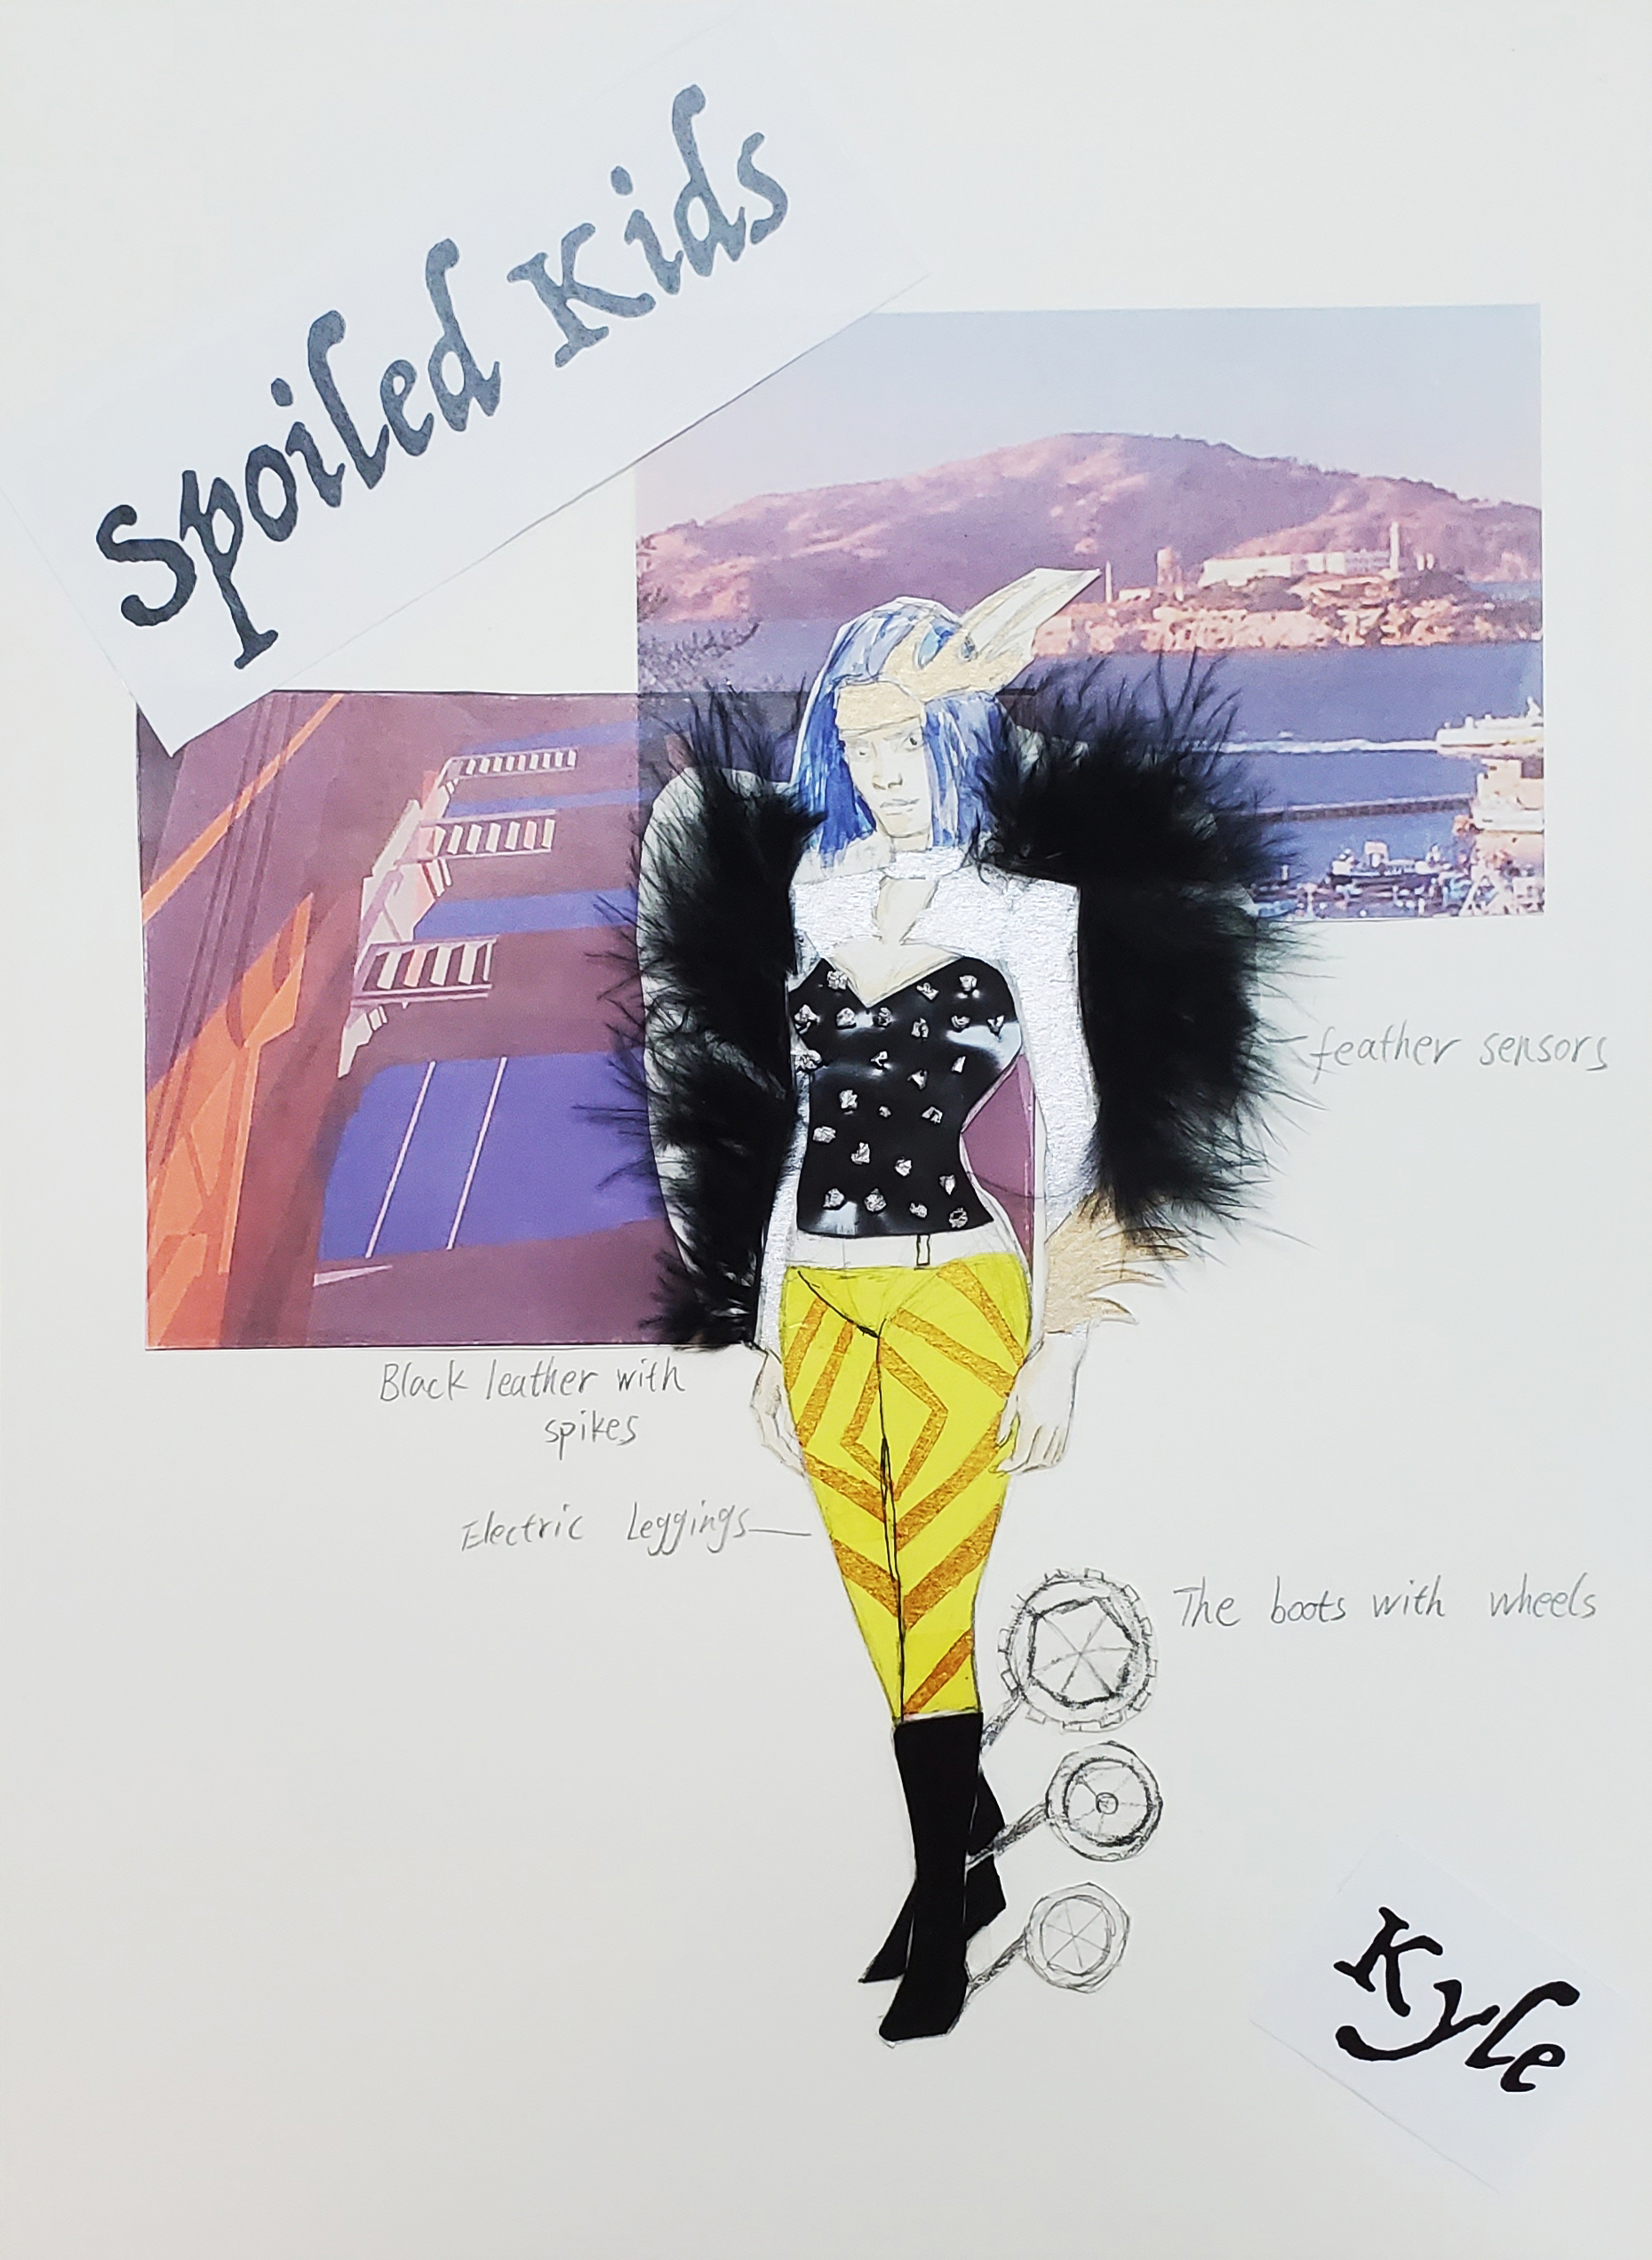 Spoiled Kids
feather sensors
Black leather with
spikes
Electric Leggings
The boots with wheels
Kyle